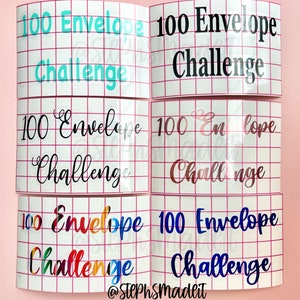 100 Envelope
Challenge
100 Envelope
Challenge
100 Envelope
Challenge
100 Envelope
Challenge
100 Envelope
Challenge
100 Envelope
Challenge
@stephsmadeit